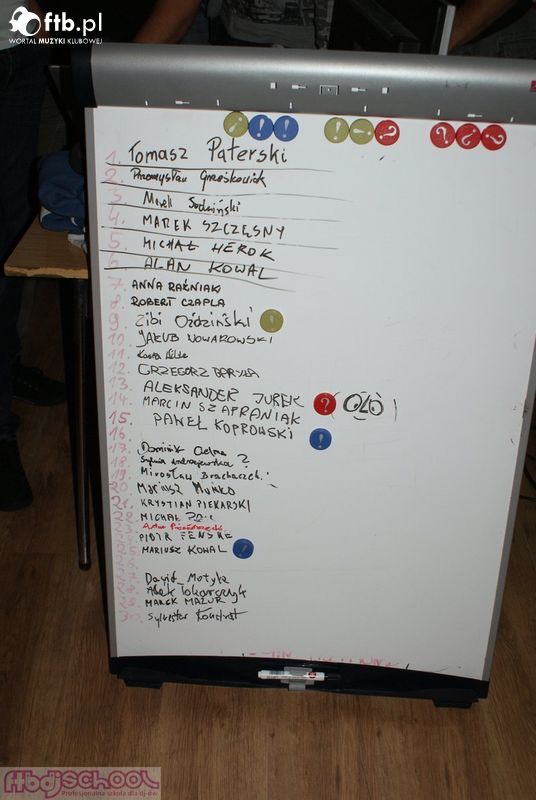 ftb.pl
WORTAL MUZYKI KLUBOWEJ
! ! ! ! ! ? ? ? ?
1. TOMASZ PATERSKI
2. Przemysław
3. Marek
4. MAREK SZCZĘSNY
5. MICHAŁ HEROK
6. ALAN KOWAL
7. ANNA RAŹNIAK
8. ROBERT CZAPLA
9. Zibi Oździński !
10. JAKUB NOWAROWSKI
11.
12. GRZEGORZ
13. ALEKSANDER JUREK
14. MARCIN SZAFRANIAK ? OLO !
15. PAWEŁ KOPROWSKI
16. !
17. Dominik
18. Sylwia Andrzejewska ?
19. Mirosław
20. Mariusz Muńko
21. KRYSTIAN PIEKARSKI
22. MICHAŁ
Artur
PIOTR FENSKE
MARIUSZ KOWAL !
Dawid Motyka
Tokarczyk
MAREK MAZUR
30. Sylwester Kondrat
ftbdjSCHOOL
Profesjonalna szkoła dla dj-ów